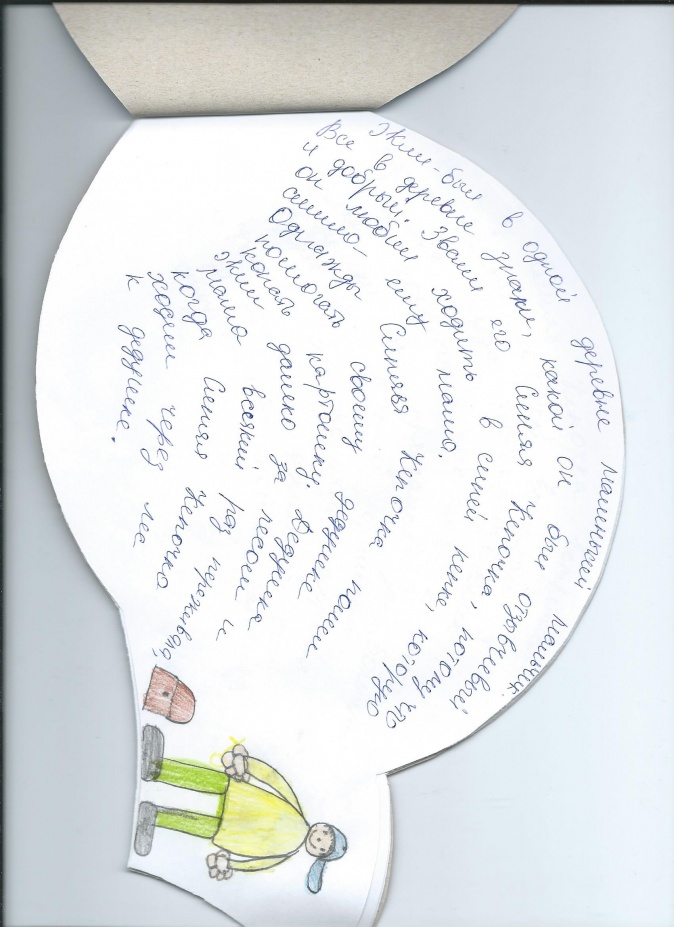 Жил-был в одной деревне маленький мальчик.
Все в деревне знали, какой он был отзывчивый
и добрый. Звали его Синяя Кепочка, потому что
он любил ходить в синей кепке, которую
сшила ему мама.
Однажды Синяя Кепочка пошел
помогать своему дедушке
копать картошку. Дедушка
жил далеко за лесом и
мама всякий раз переживала,
когда Синяя Кепочка
ходил через лес
к дедушке.